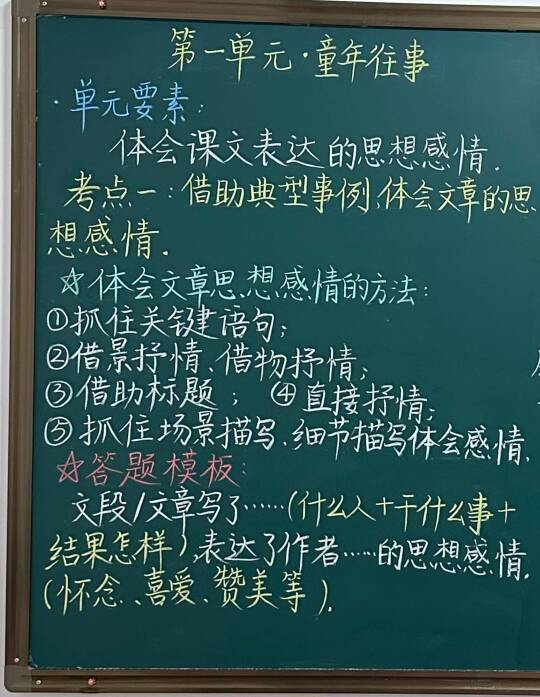 第一单元·童年往事
·单元要素:
体会课文表达的思想感情.
考点一:借助典型事例、体会文章的思
想感情.
☆体会文章思想感情的方法:
①抓住关键语句;
②借景抒情、借物抒情;
③借助标题; ④直接抒情;
⑤抓住场景描写、细节描写体会感情.
☆答题模板:
文段/文章写了……(什么人+干什么事+
结果怎样),表达了作者……的思想感情.
(怀念、喜爱、赞美等).